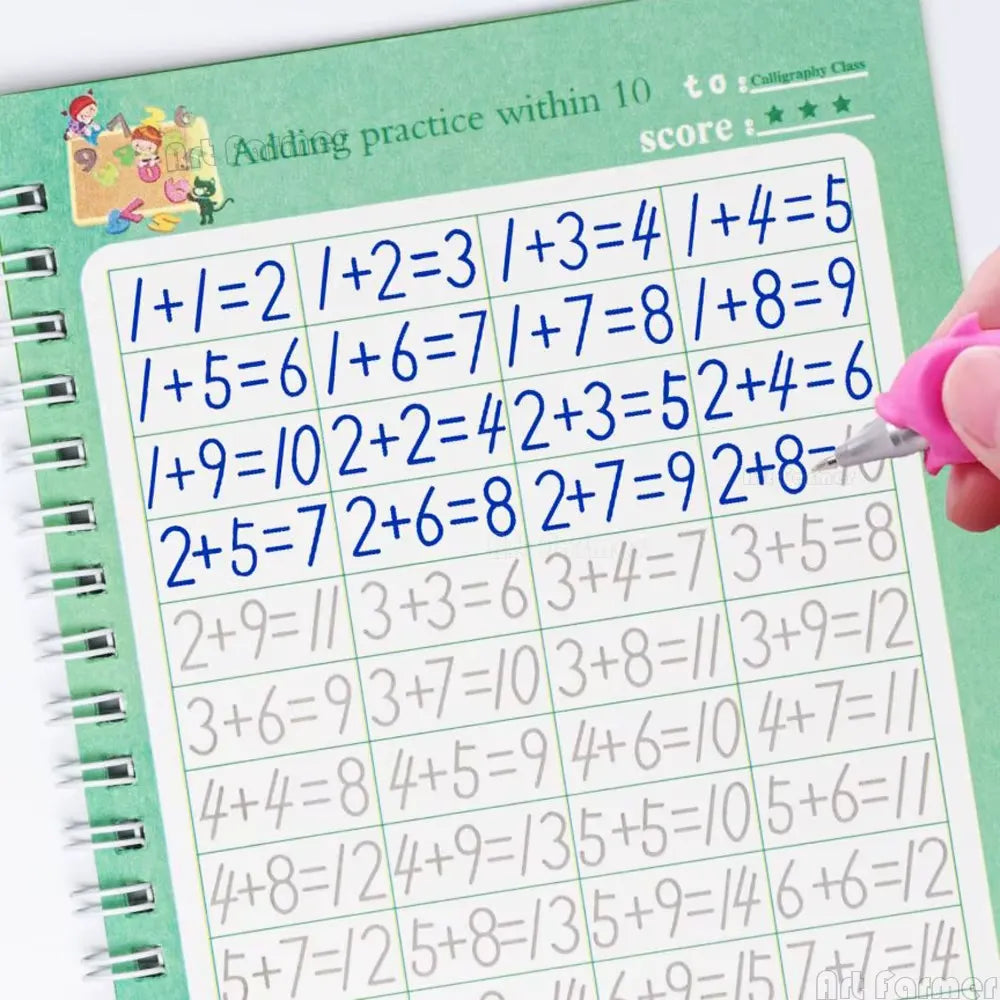 to: Calligraphy Class
Adding practice within 10
score: ★ ★ ★
Art Farmer
1+1=2 1+2=3 1+3=4 1+4=5
1+5=6 1+6=7 1+7=8 1+8=9
1+9=10 2+2=4 2+3=5 2+4=6
2+5=7 2+6=8 2+7=9 2+8=10
2+9=11 3+3=6 3+4=7 3+5=8
3+6=9 3+7=10 3+8=11 3+9=12
4+4=8 4+5=9 4+6=10 4+7=11
4+8=12 4+9=13 5+5=10 5+6=11
5+7=12 5+8=13 5+9=14 6+6=12
6+9=15 7+7=14
Art Farmer